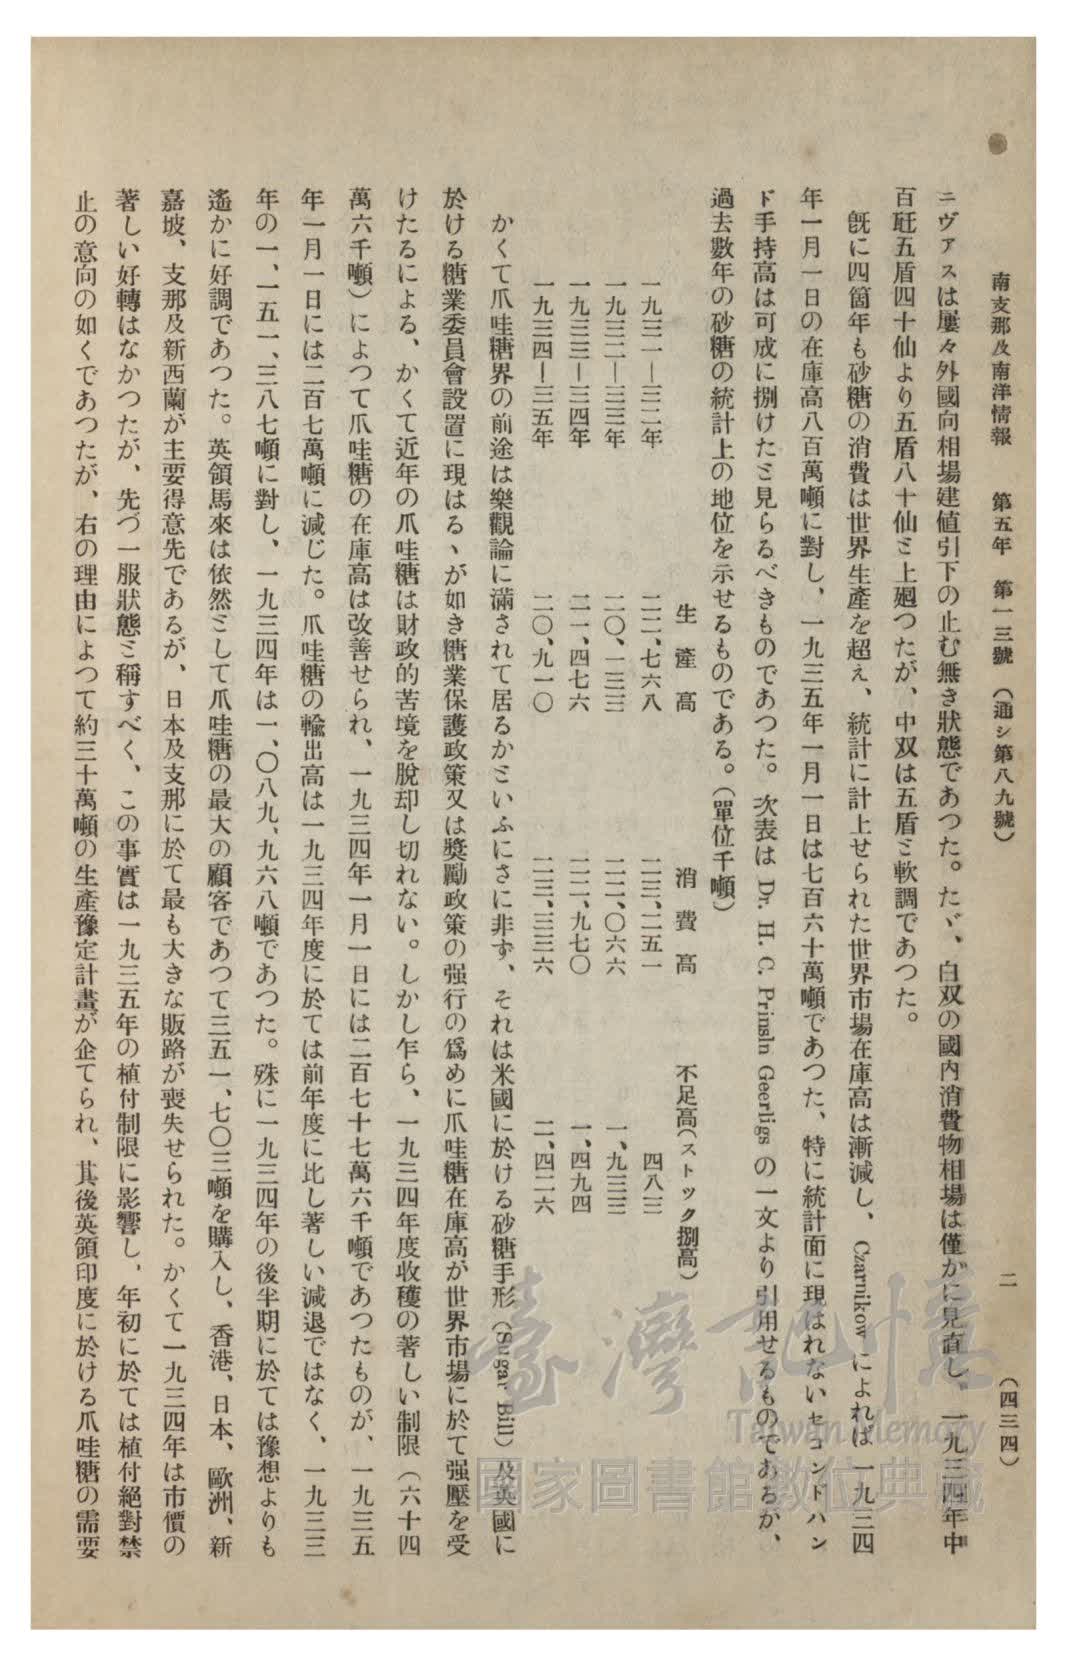 南支那及南洋情報　第五年　第一三號　（通シ第八九號）　二　（四三四）
ニヴアスは屢々外國向相場建値引下の止む無き狀態であつた。たゞ、白双の國內消費物相場は僅かに見直し、一九三四年中
百瓩五盾四十仙より五盾八十仙ミ上廻つたが、中双は五盾ミ軟調であつた。
既に四箇年も砂糖の消費は世界生產を超え、統計に計上せられた世界市場在庫高は漸減し、Czarnikow によれば一九三四
年一月一日の在庫高八百萬噸に對し、一九三五年一月一日は七百六十萬噸であつた、特に統計面に現はれないセコンドハン
ド手持高は可成に捌けたミ見らるべきものであつた。次表は Dr. H. C. Prinsln Geerligs の一文より引用せるものであるが、
過去數年の砂糖の統計上の地位を示せるものである。（單位千噸）
生產高　消費高　不足高（ストック捌高）
一九三一―三二年　二二、七六八　二三、二五一　四八三
一九三二―三三年　二〇、一三三　二二、〇六六　一、九三三
一九三三―三四年　二一、四七六　二二、九七〇　一、四九四
一九三四―三五年　二〇、九一〇　二三、三三六　二、四二六
かくて爪哇糖界の前途は樂觀論に滿されて居るかミいふにさに非ず、それは米國に於ける砂糖手形（Sugar Bill）及英國に
於ける糖業委員會設置に現はるゝが如き糖業保護政策又は奬勵政策の强行の爲めに爪哇糖在庫高が世界市場に於て强壓を受
けたるによる、かくて近年の爪哇糖は財政的苦境を脫却し切れない。しかし乍ら、一九三四年度收穫の著しい制限（六十四
萬六千噸）によつて爪哇糖の在庫高は改善せられ、一九三四年一月一日には二百七十七萬六千噸であつたものが、一九三五
年一月一日には二百七萬噸に減じた。爪哇糖の輸出高は一九三四年度に於ては前年度に比し著しい減退ではなく、一九三三
年の一、一五一、三八七噸に對し、一九三四年は一、〇八九、九六八噸であつた。殊に一九三四年の後半期に於ては豫想よりも
遙かに好調であつた。英領馬來は依然ミして爪哇糖の最大の顧客であつて三五一、七〇三噸を購入し、香港、日本、歐洲、新
嘉坡、支那及新西蘭が主要得意先であるが、日本及支那に於て最も大きな販路が喪失せられた。かくて一九三四年は市價の
著しい好轉はなかつたが、先づ一服狀態ミ稱すべく、この事實は一九三五年の植付制限に影響し、年初に於ては植付絕對禁
止の意向の如くであつたが、右の理由によつて約三十萬噸の生產豫定計畫が企てられ、其後英領印度に於ける爪哇糖の需要
臺灣記憶
Taiwan Memory
國家圖書館數位典藏